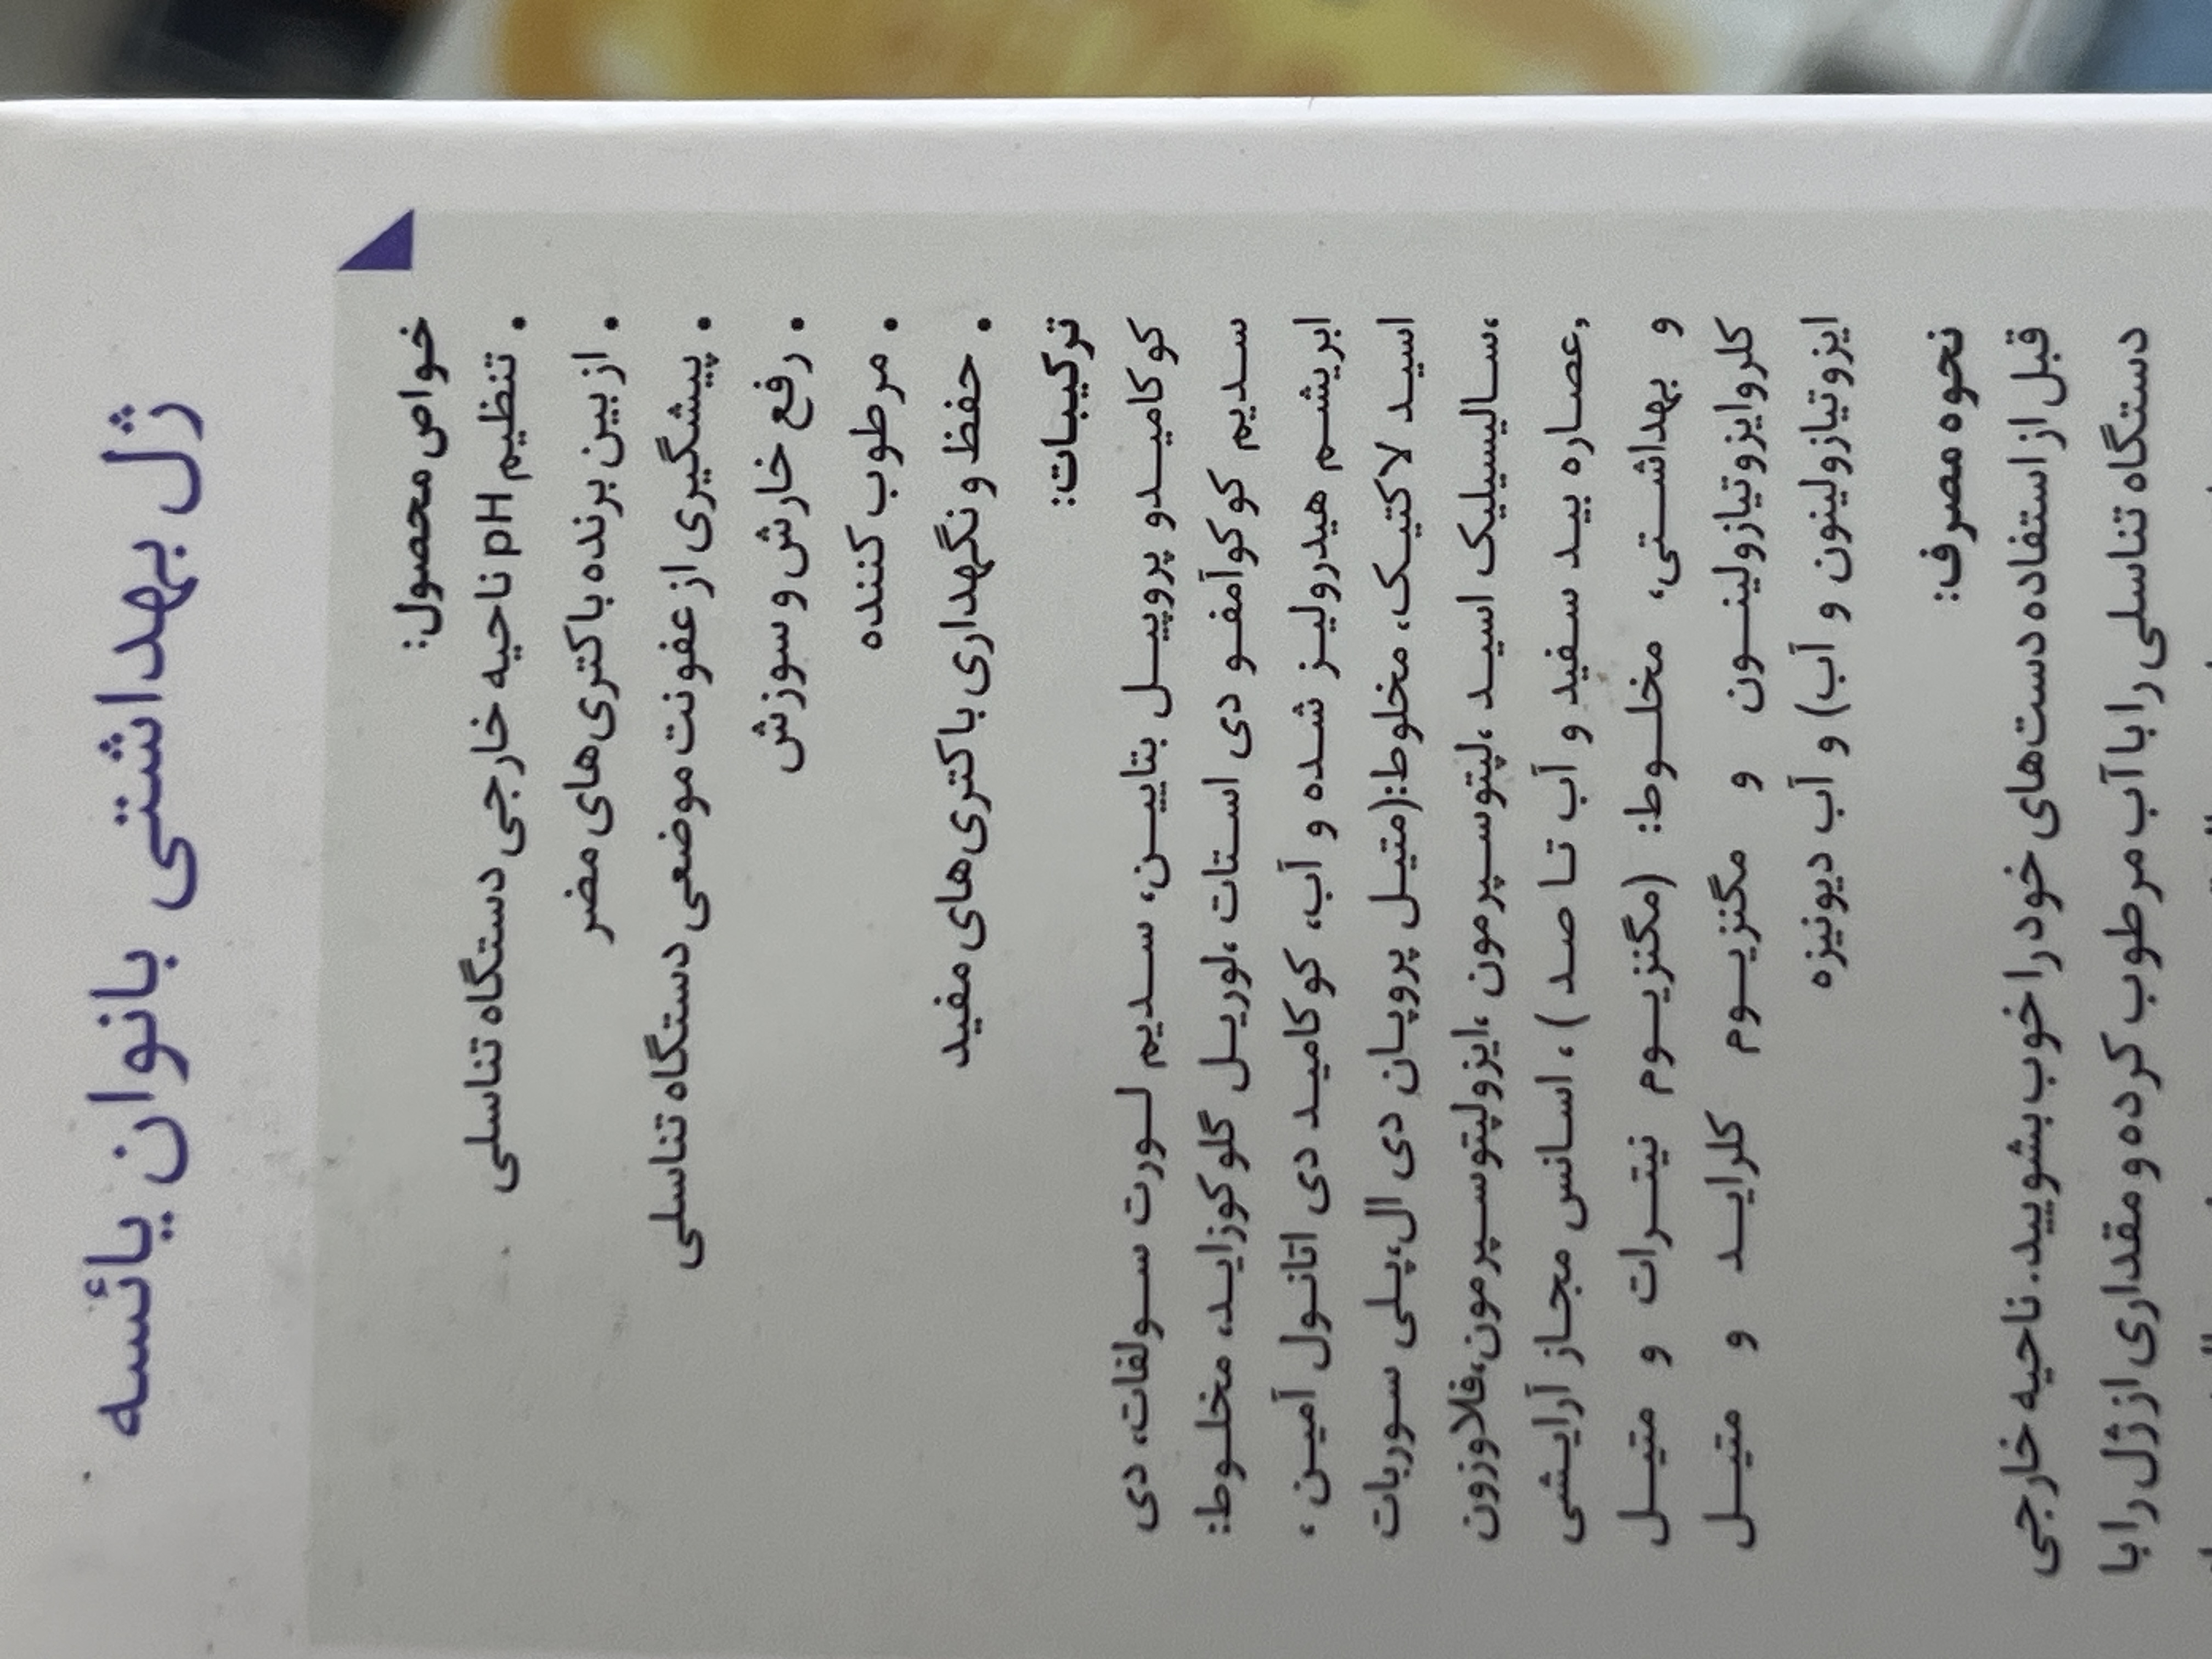 ژل بهداشتی بانوان یائسه
خواص محصول:
• تنظیم pH ناحیه خارجی دستگاه تناسلی
• از بین برنده باکتری‌های مضر
• پیشگیری از عفونت موضعی دستگاه تناسلی
• رفع خارش و سوزش
• مرطوب کننده
• حفظ و نگهداری باکتری‌های مفید
ترکیبات:
کوکامیدو پروپیل بتایین، سدیم لورت سولفات، دی
سدیم کوکوآمفو دی استات ،لوریل گلوکوزاید، مخلوط:
ابریشم هیدرولیز شده و آب، کوکامید دی اتانول آمین ،
اسید لاکتیک، مخلوط:(متیل پروپان دی ال،پلی سوربات
،سالیسیلیک اسید ،لپتوسپرمون ،ایزولپتوسپرمون،فلاوزون
,عصاره بید سفید و آب تا صد ) ، اسانس مجاز آرایشی
و بهداشتی، مخلوط: (مگنزیوم نیترات و متیل
کلروایزوتیازولینون و مگنزیوم کلراید و متیل
ایزوتیازولینون و آب) و آب دیونیزه
نحوه مصرف:
قبل از استفاده دست‌های خود را خوب بشویید. ناحیه خارجی
دستگاه تناسلی را با آب مرطوب کرده و مقداری از ژل را با